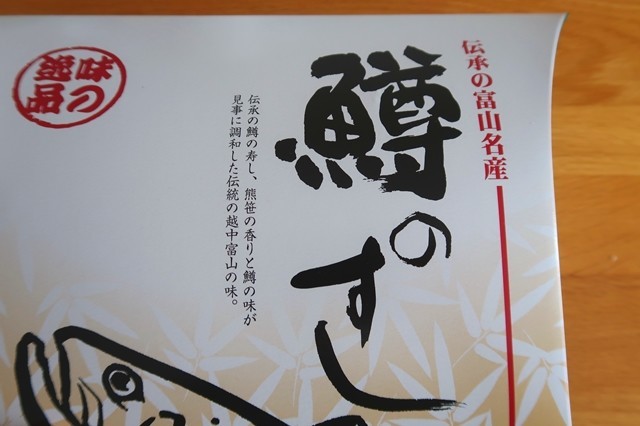 伝承の富山名産
鱒のすし
伝承の鱒の寿し、熊笹の香りと鱒の味が
見事に調和した伝統の越中富山の味。
味の
逸品